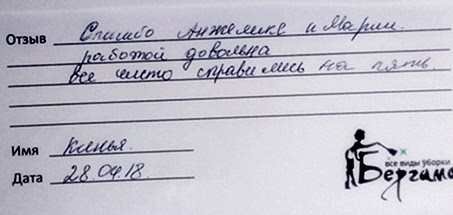 Отзыв Спасибо Анжелике и Марии.
работой довольна
все чисто справились на пять.
Имя Ксенья.
Дата 28.04.18.
все виды уборки
Бергамо